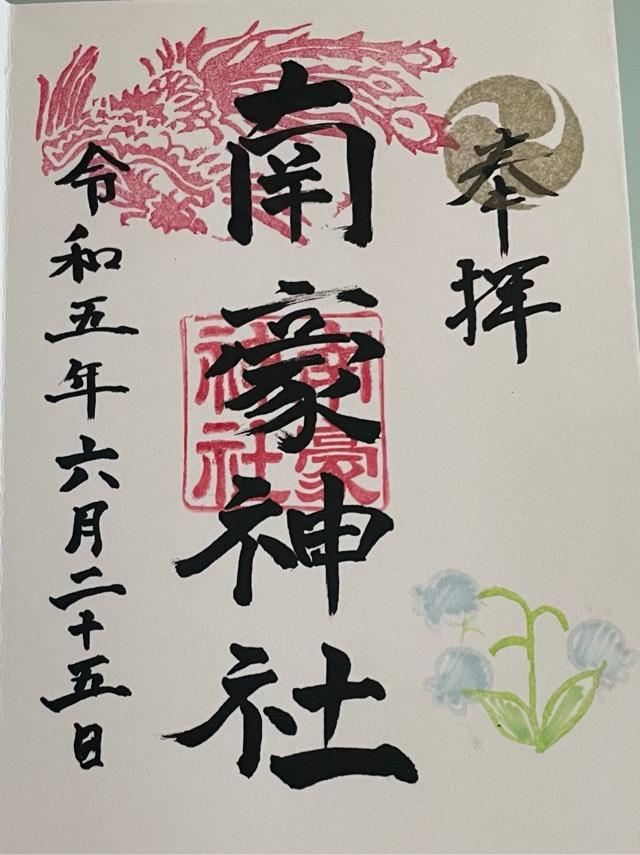 奉拝
南豪神社
南豪神社
令和五年六月二十五日